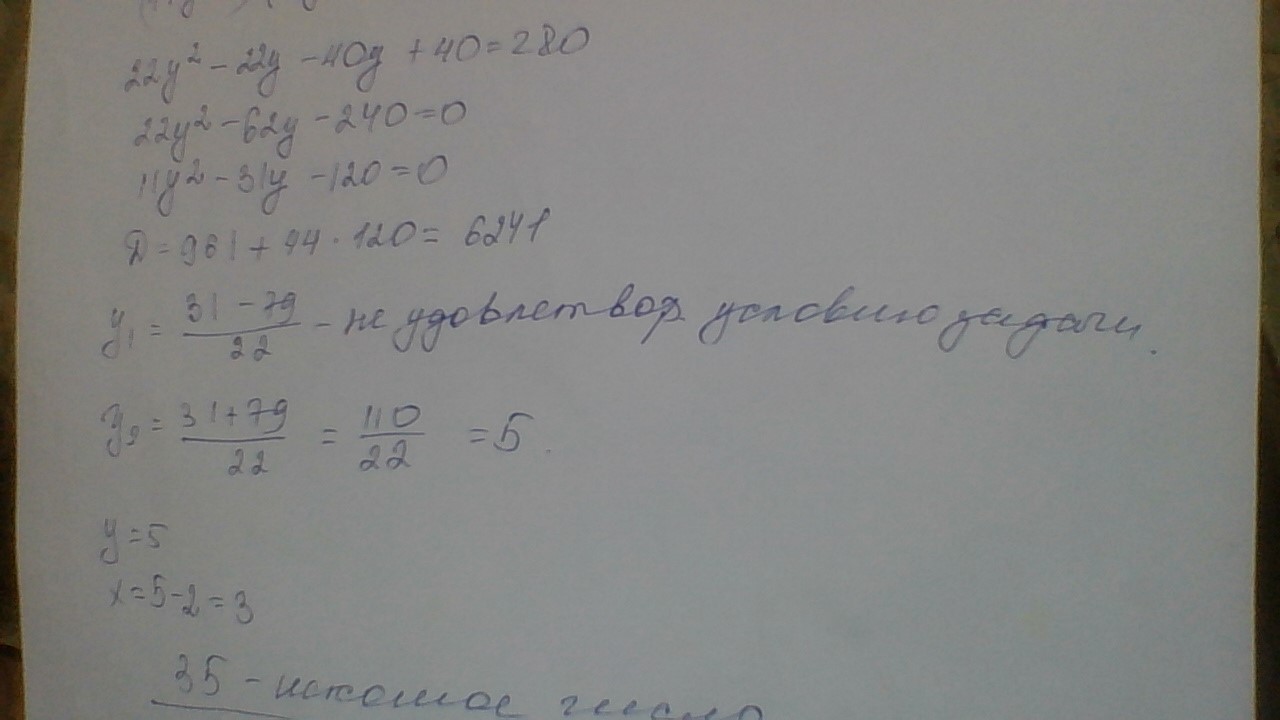 22y² - 22y - 40y + 40 = 280
22y² - 62y - 240 = 0
11y² - 31y - 120 = 0
Д = 961 + 44 · 120 = 6241
y₁ = (31 - 79)/22 - не удовлетвор условию задачи.
y₂ = (31 + 79)/22 = 110/22 = 5.
y = 5
x = 5 - 2 = 3
35 - искомое число